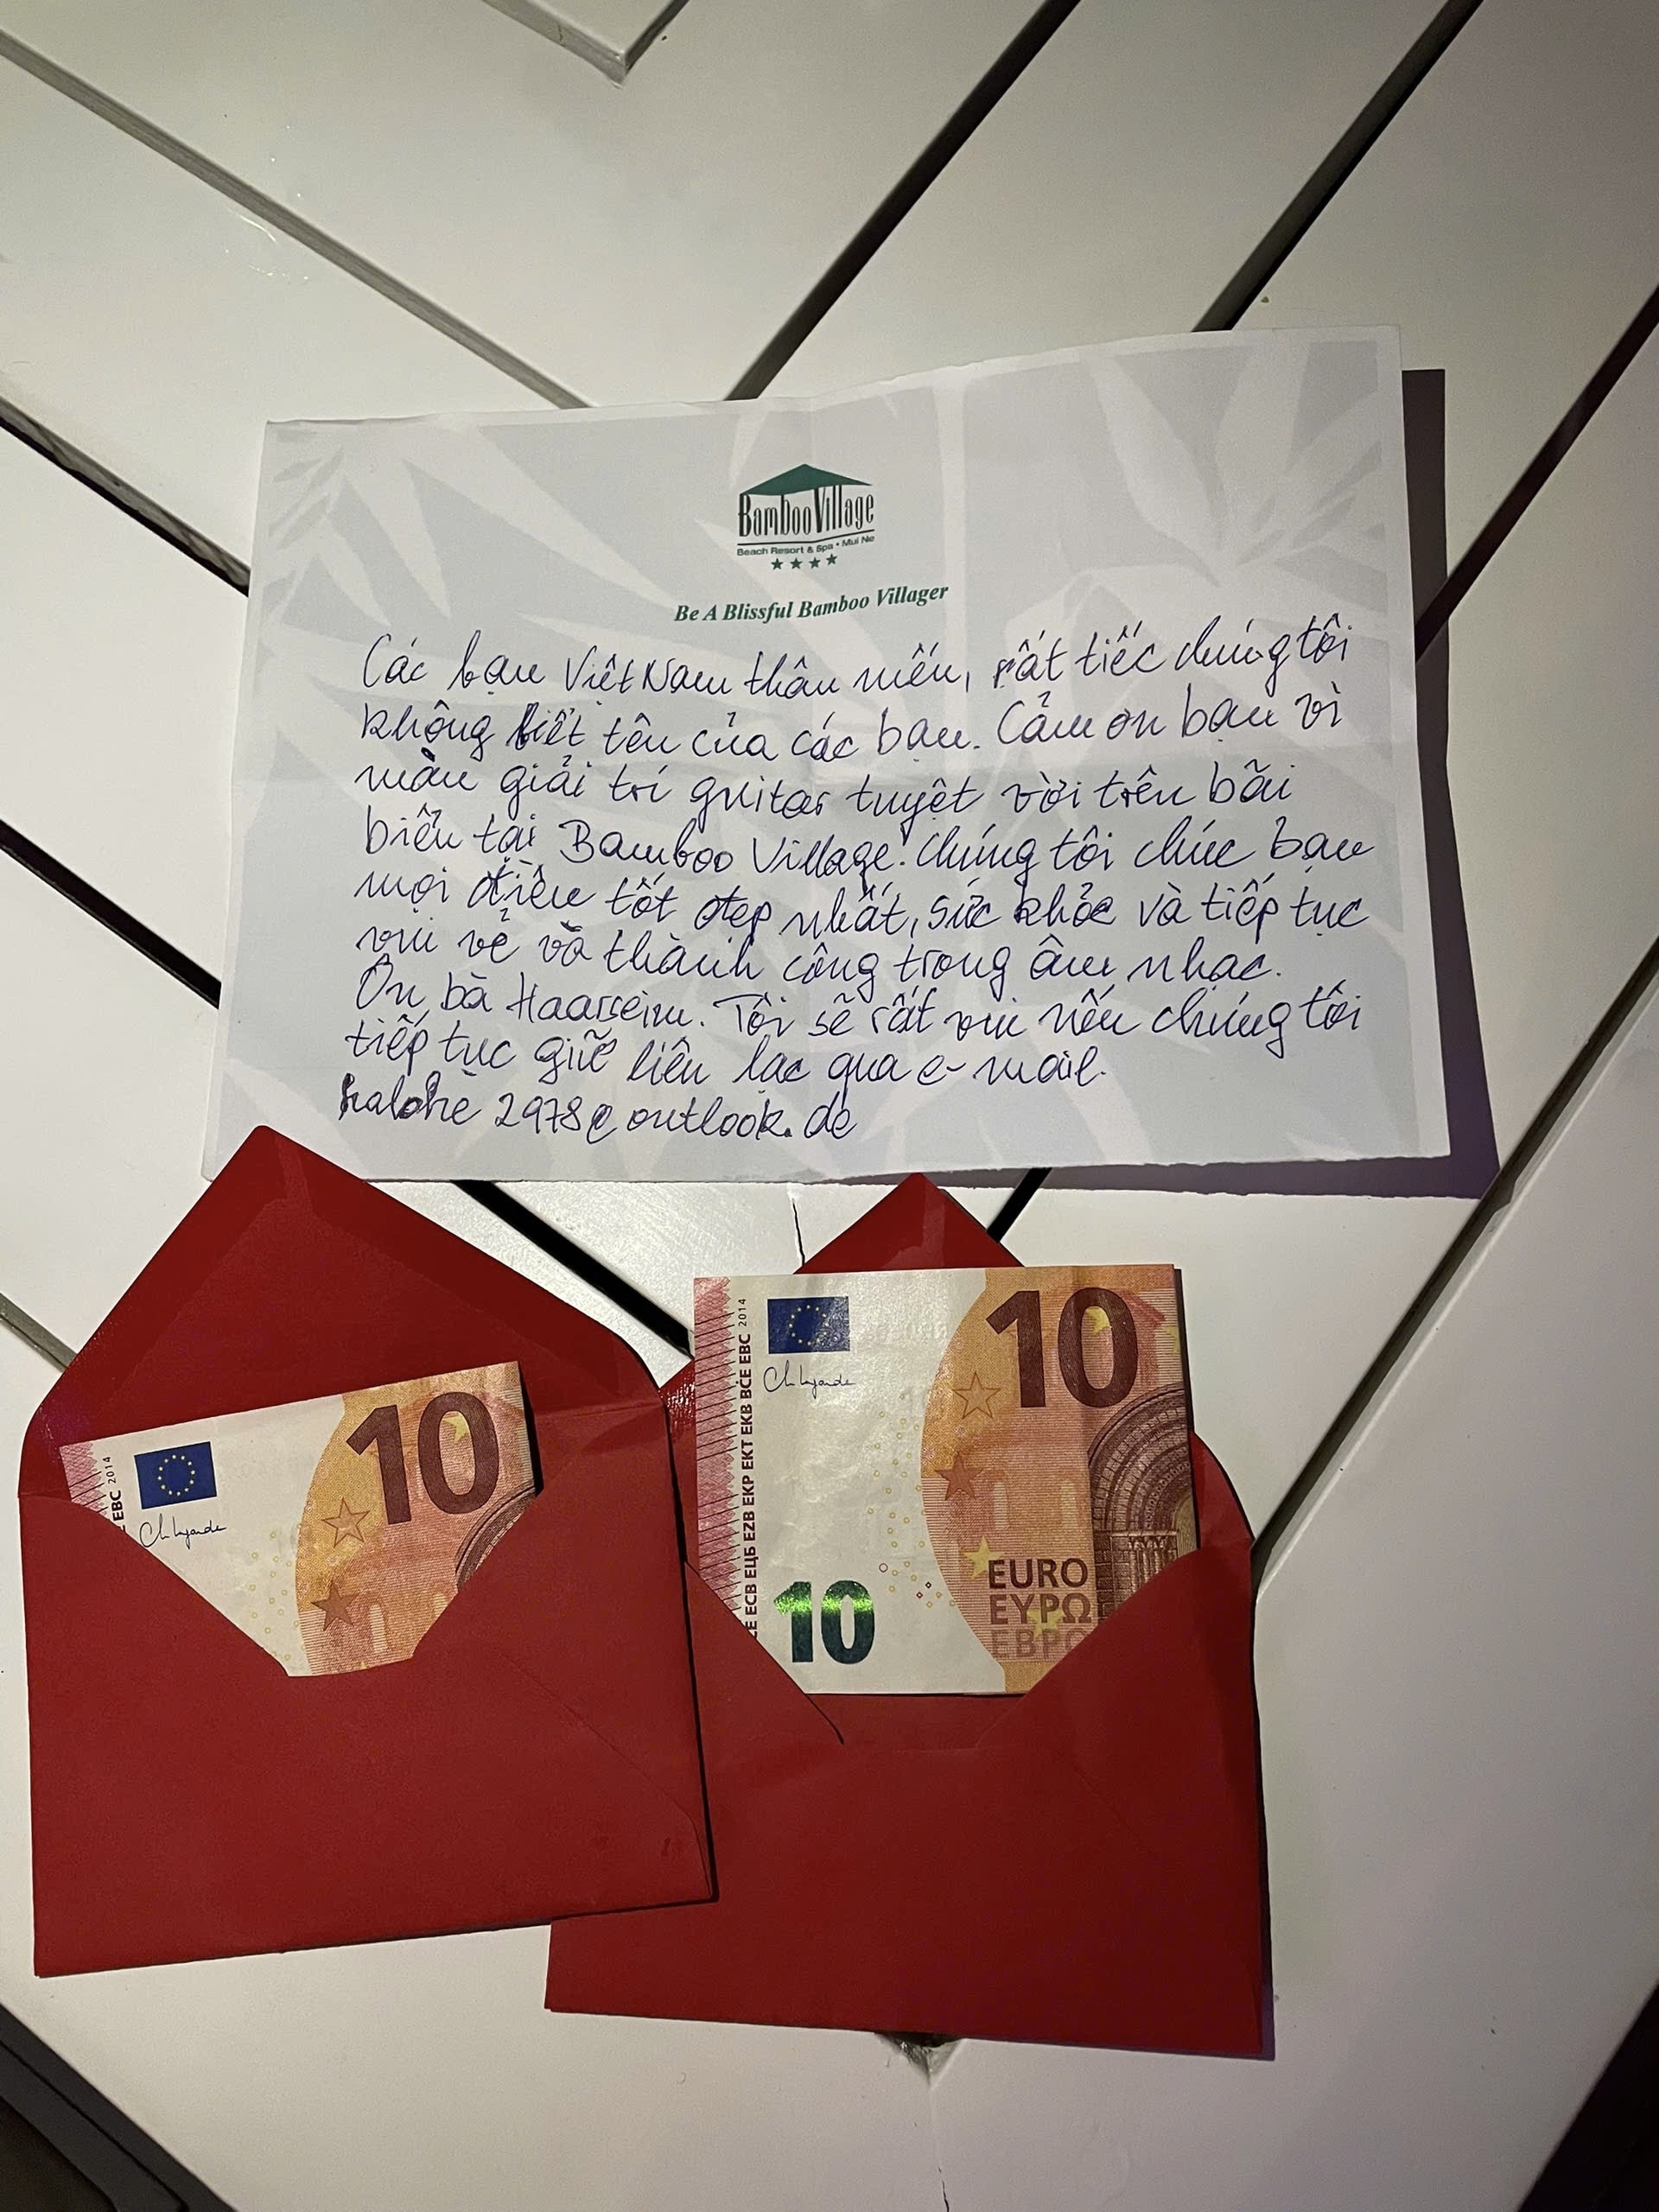 BambooVillage
Beach Resort & Spa • Mui Ne
Be A Blissful Bamboo Villager
Các bạn Việt Nam thân mến, rất tiếc chúng tôi
không biết tên của các bạn. Cảm ơn bạn vì
màn giải trí guitar tuyệt vời trên bãi
biển tại Bamboo Village. Chúng tôi chúc bạn
mọi điều tốt đẹp nhất, sức khỏe và tiếp tục
vui vẻ và thành công trong âm nhạc.
Ôn bà Haarseim. Tôi sẽ rất vui nếu chúng tôi
tiếp tục giữ liên lạc qua e-mail.
2978@outlook.de
EBC 2014
10
ECB EЦБ EZB EKP EKT EKB BCE EBC 2014
10
10
EURO
ΕΥΡΩ
ЕВРО